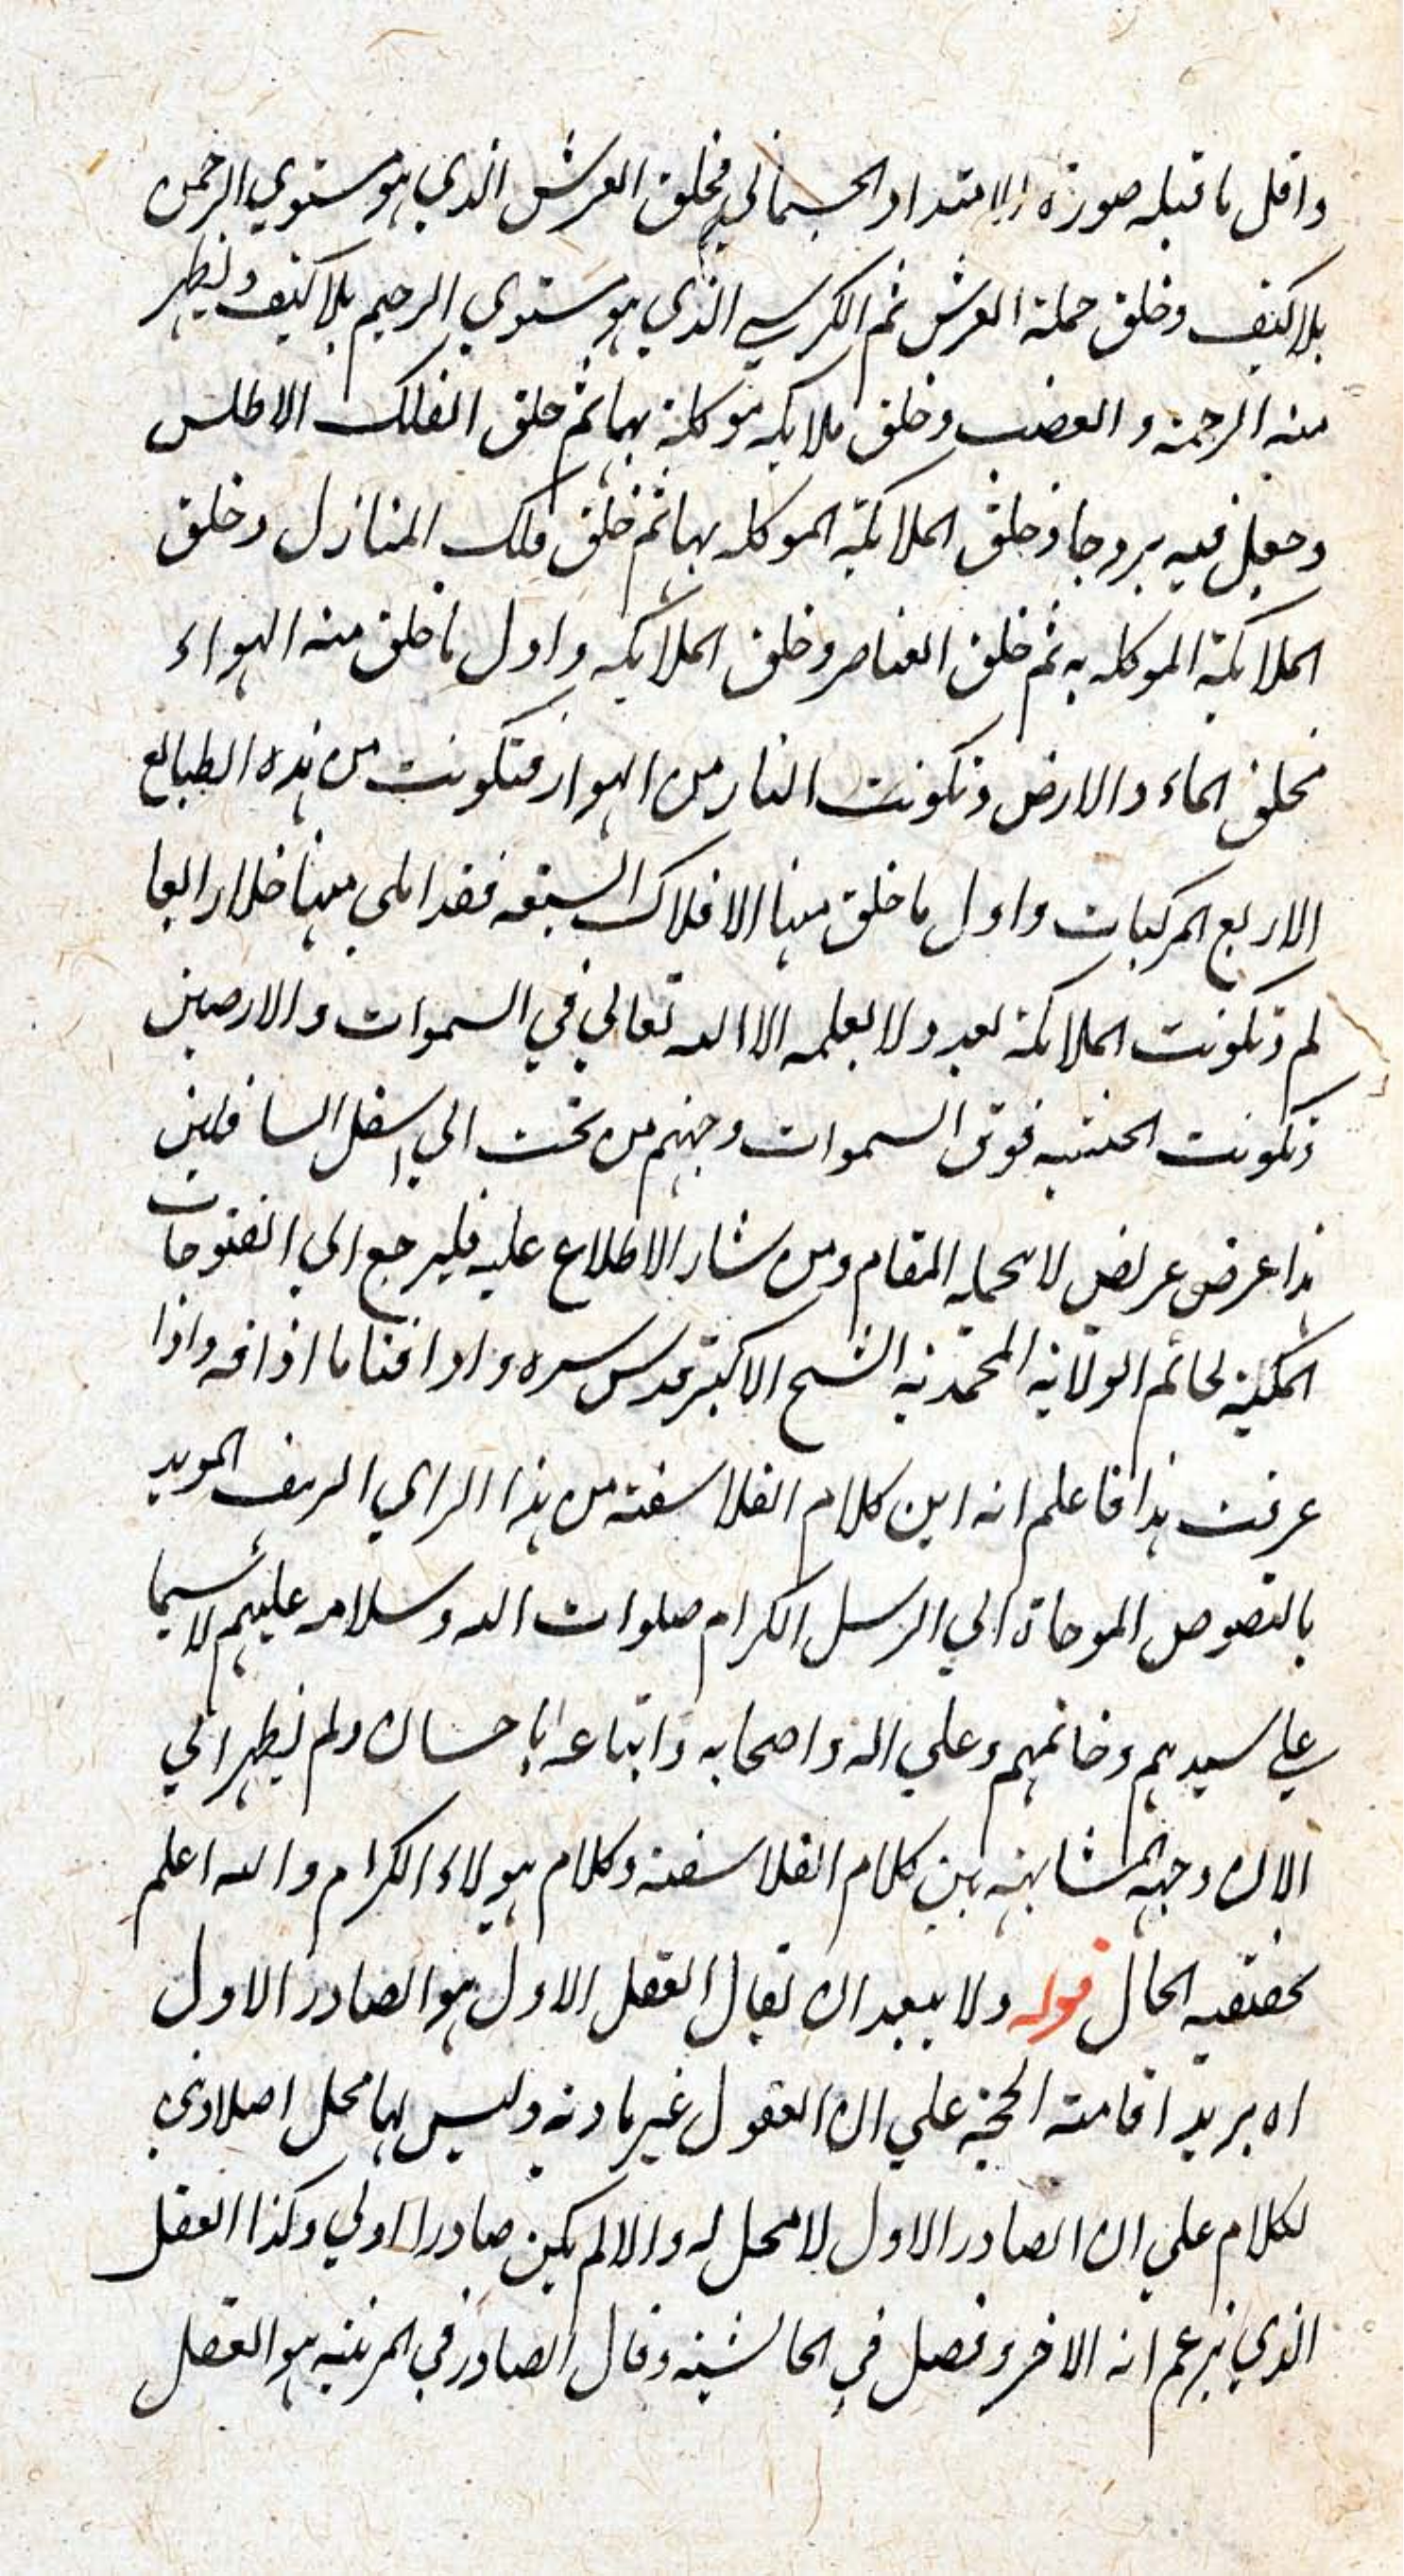 واقل ما قبله صورة الامتداد الجسماني فخلق العرش الذي هو مستوي الرحمن
بلا كيف وخلق حملة العرش ثم الكرسي الذي هو مستوي الرحيم بلا كيف وليظهر
منه الرحمة والغضب وخلق ملايكه موكلة بهما ثم خلق الفلك الاطلس
وجعل فيه بروجا وخلق الملائكة الموكله بها ثم خلق فلك المنازل وخلق
الملائكة الموكله به ثم خلق العناصر وخلق الملايكه واول ما خلق منه الهواء
فخلق الماء والارض وتكونت النار من الهواء فتكونت من هذه الطبائع
الاربع المركبات واول ما خلق منها الافلاك السبعه فقد املي منها خلاء رابعا
لم تكونت الملائكة بعد ولا يعلمه الا الله تعالي في السموات والارضين
تكونت الجنة فوق السموات وجهنم من تحت الي اسفل السافلين
هذا عرض عريض لا يحمله المقام ومن شاء الاطلاع عليه فليرجع الي الفتوحات
المكية لخاتم الولاية المحمدية الشيخ الاكبر قدس سره واذاقنا ما اذاقه واذا
عرفت هذا فاعلم انه اين كلام الفلاسفة من هذا الراي المويد
بالنصوص الموحاة الي الرسل الكرام صلوات الله وسلامه عليهم لا سيما
علي سيدهم وخاتمهم وعلي اله واصحابه واتباعه باحسان ولم يظهر الي
الان وجه المشابهة بين كلام الفلاسفة وكلام هولاء الكرام والله اعلم
بحقيقة الحال قوله ولا يبعد ان يقال العقل الاول هو الصادر الاول
اه يريد اقامة الحجة علي ان العقول غير مادية وليس لها محل اصلا وبني
الكلام علي ان الصادر الاول لا محل له والا لم يكن صادرا اولي وكذا العقل
الذي يزعم انه الاخر وفصل في الحاشية وقال الصادر في المرتبه هو العقل